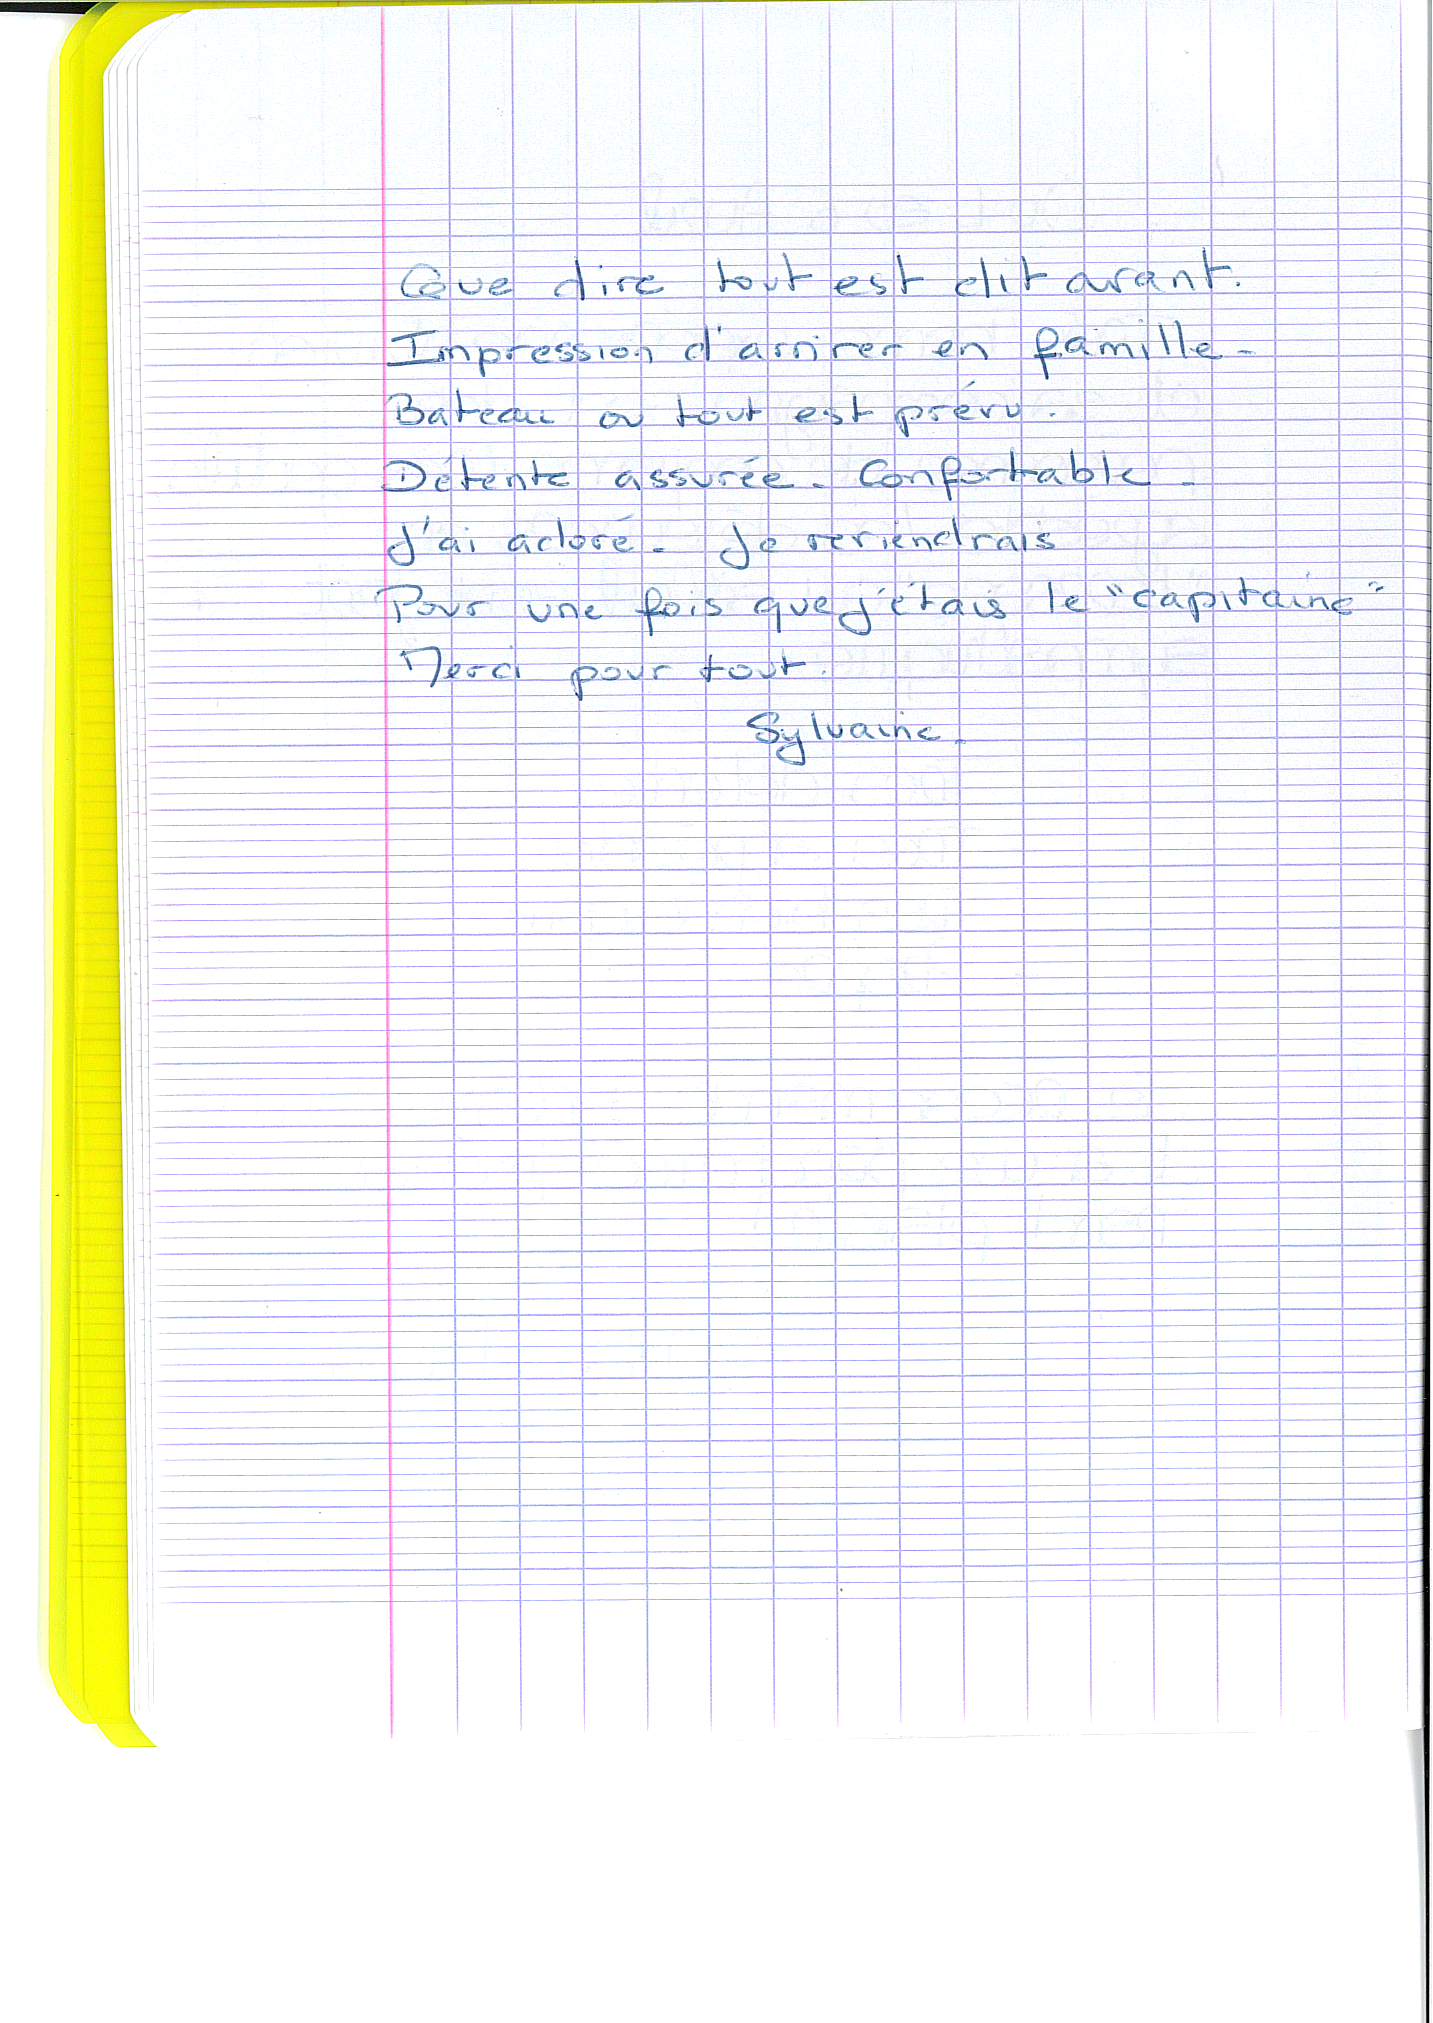 Que dire tout est dit avant.
Impression d'arriver en famille -
Bateau ou tout est prévu.
Détente assurée - Confortable -
J'ai adoré - Je reviendrais
Pour une fois que j'étais le "capitaine"
Merci pour tout.
Sylvaine -